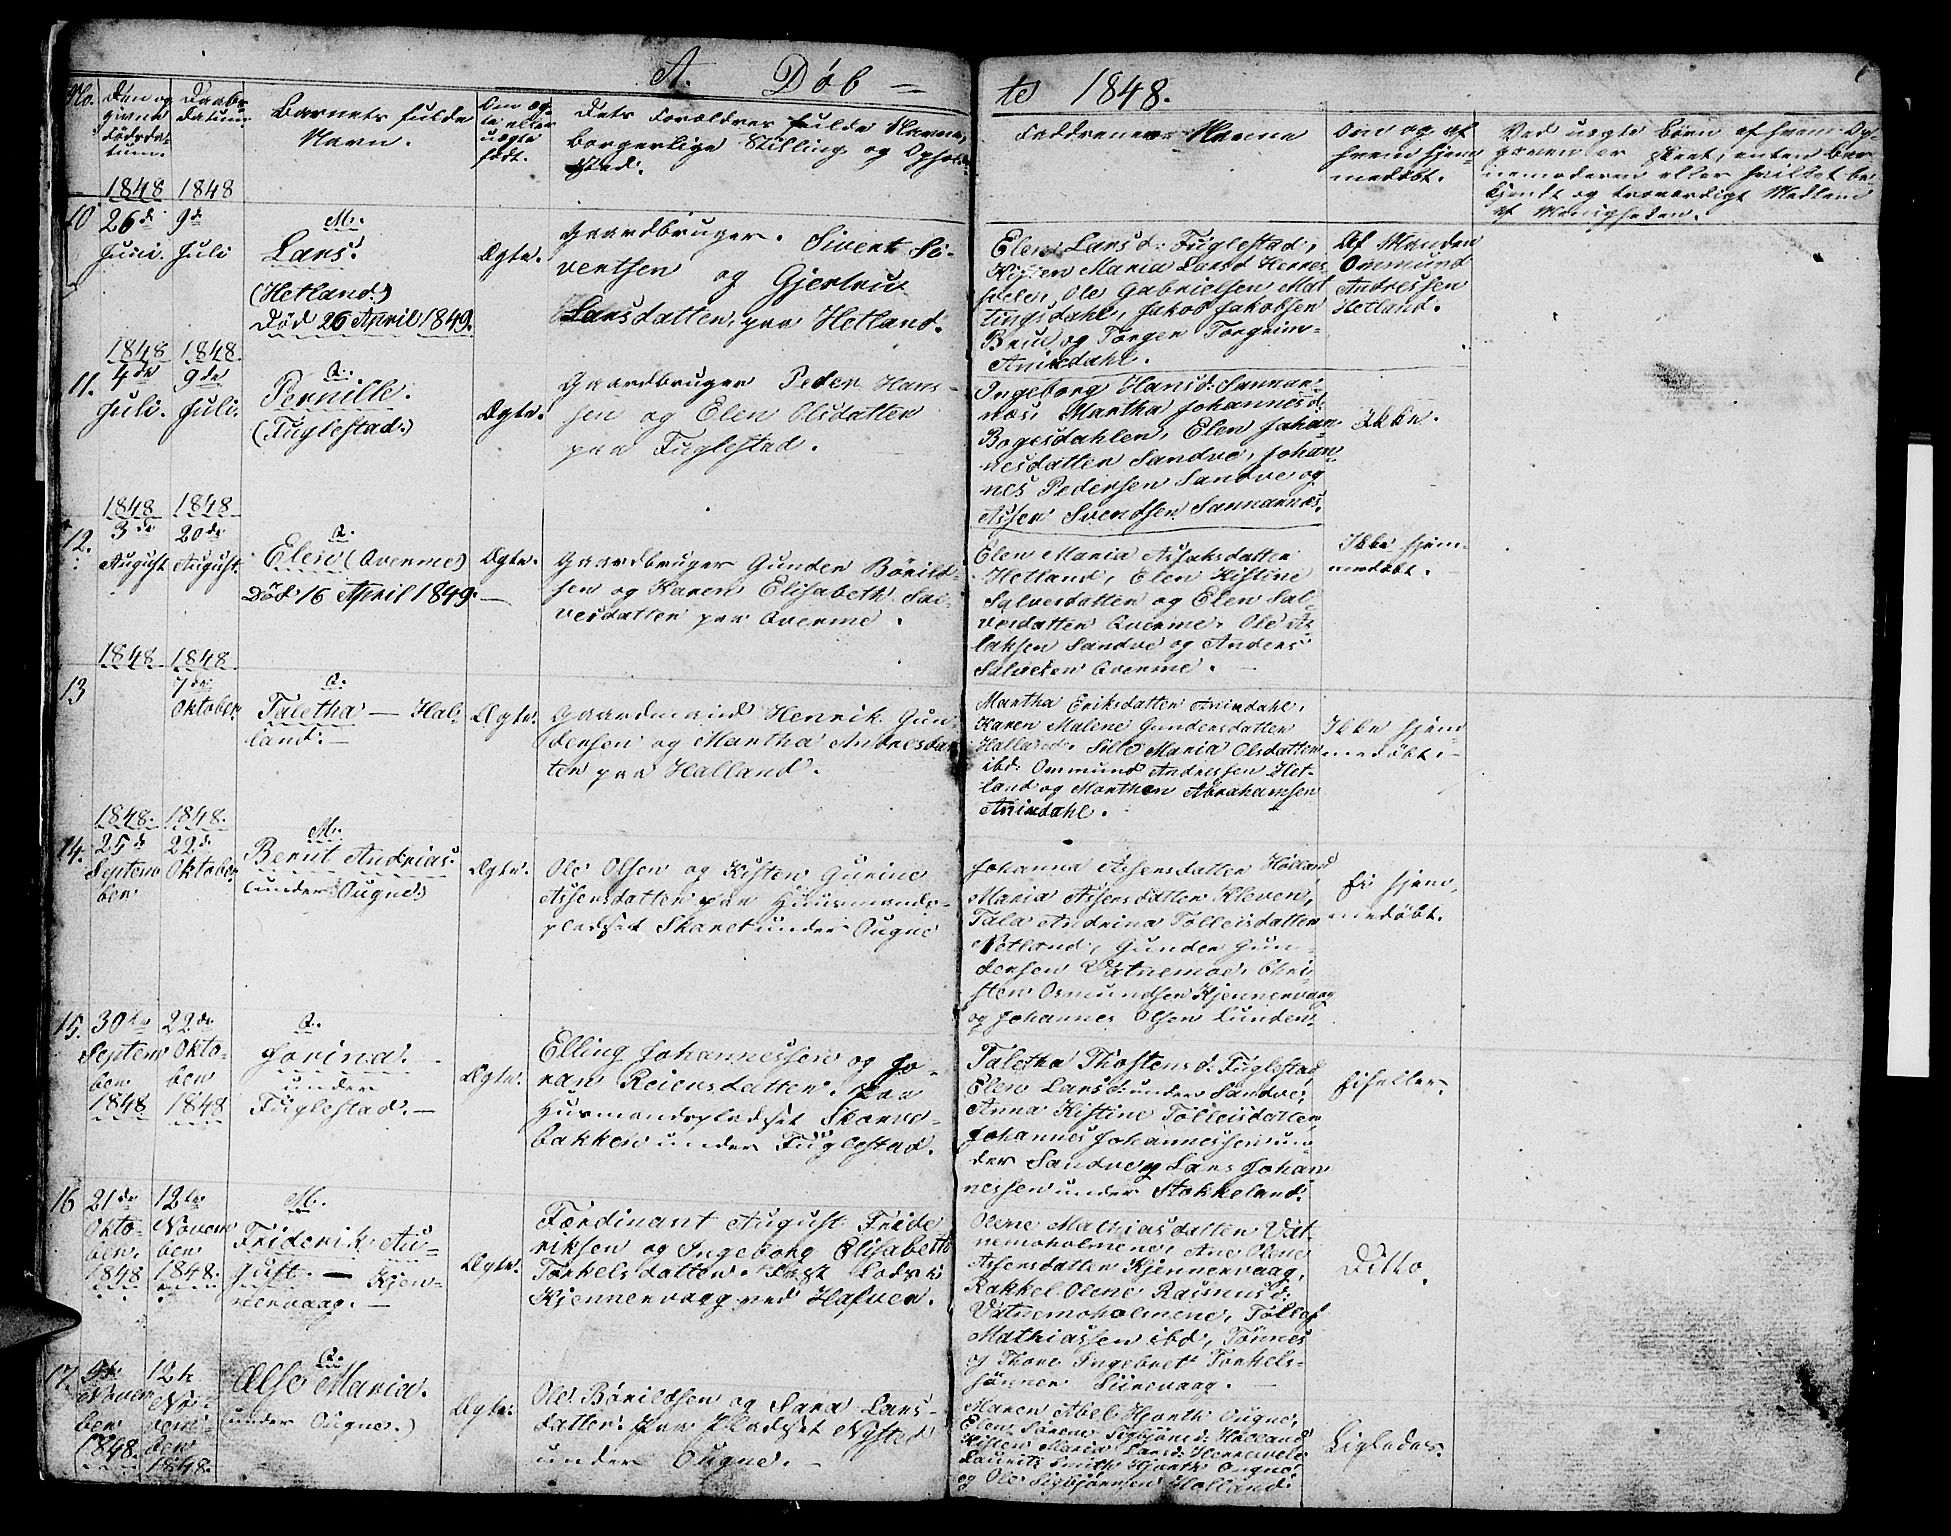 A. Døb-
te 1848.
No.
Den og
givne
Fødsda-
tum.
Daabs-
datum.
Barnets fulde
Navn.
Om æg-
te eller
uægte
født.
Dets Forældres fulde Navne,
borgerlige Stilling og Ophold
sted.
Faddrenes Navne
Om og af
hvem hjem
medøbt.
Ved uægte Børn af hvem Op
gaven er skeet, enten Bar
nemoderen eller hvilket be
kjendt og troværdigt Medlem
af Menigheden.
1848 1848
10
26de
Juni.
9de
Juli
M.
Lars.
(Hetland.)
Død 26 April 1849.
Ægte.
Gaardbruger. Sivert Si-
vertsen og Gjertru
Larsdatter, paa Hetland.
Elen Larsd: Fuglestad,
Kisten Maria Larsd Herres
vele, Ole Gabrielsen Mat
tingsdahl, Jakob Jakobsen
Brue og Torger Torgrim-
Anisdahl.
Af Manden
Ommund
Andressen
Hetland.
1848 1848.
11.
4de
Juli.
9de
Juli.
Q.
Pernille.
(Fuglestad.)
Ægte.
Gaardbruger Peder Hans-
sen og Elen Olsdatter
paa Fuglestad.
Ingeborg Hansd: Sannar-
næs, Martha Johannesd:
Bogesdahlen, Elen Johan-
nesdatter Sandve, Johan
nes Pedersen Sandve og
Asser Svendsen Sannarnæs.
Ikke.
1848 1848
12.
3de
August
20de
August.
Q.
Elen (Qverme)
Død 16 April 1849.
Ægte.
Gaardbruger Gunder Børild-
sen og Karen Elisabeth Sal-
vesdatter paa Qverme.
Elen Maria Aslaksdatter
Hetland, Elen Kistine
Salvesdatter og Elen Sal-
vesdatter Qverme, Ole As
laksen Sandve og Anders
Salvesen Qverme.
Ikke hjem-
medøbt.
1848 1848
13
7de
Oktober.
Q.
Taletha — Hal-
land.
Ægte.
Gaardmand Henrik Gun-
dersen og Martha Andresdat
ter paa Halland.
Martha Eriksdatter Anisdahl,
Karen Malene Gundersdatter
Halland, Sille Maria Olsdatter
ibd: Ommund Andressen Het-
land og Morthen Abrahamsen
Anisdahl.
Ikke hjem
medøbt.
1848. 1848.
14.
25de
Septem
ber
22de
Oktober.
M.
Bernt Andrias.
(under Ougne)
Ægte.
Ole Olsen og Kisten Gurine
Assersdatter paa Huusmands-
pladset Skaret under Ougne
Johanna Assersdatter Hølland
Maria Assersdatter Kleven,
Tala Andrina Tolleisdatter
Netland, Gunder Gun-
dersen Vatnemoe, Chri
sten Osmundsen Kjennervaag
og Johannes Olsen Lunden.
Ei hjem,
medøbt.
15.
30te
Septem
ber
1848
22de
Okto-
ber
1848
Q.
Jorina.
under
Fuglestad. —
Ægte.
Elling Johannessen og Jo-
ran Reiersdatter. paa
Husmandspladset Skarve-
bakken under Fuglestad.
Taletha Thostensd: Fuglestad
Elen Larsd: under Sandve,
Anna Kistine Tolleisdatter
Johannes Johannessen un-
der Sandve og Lars Johan
nessen under Stokkeland.
Ei heller.
16
21de
Okto-
ber.
1848
12te
Novem
ber
1848.
M.
Friderik Au-
gust. — Kjen-
nervaag. —
Ægte.
Færdinant August Fride
riksen og Ingeborg Elisabeth
Torkelsdatter. Fast Lods i
Kjennervaag ved Hafven.
Olene Mathiasdatter Vat-
nemoholmene, Ane Olene
Assersdatter Kjennervaag,
Rakkel Olene Rasmusd:
Vatnemoholmene, Tollef
Mathiassen ibd, Tønnes
og Thore Ingebret Torkels-
sønner Siirevaag. —
Ditto.
17.
Novem
ber
1848.
12te
No-
vem
ber
1848.
Q.
Ælse Maria.
(under Ougne.)
Ægte.
Ole Børildsen og Sara Lars-
datter. paa Pladset Nysted
under Ougne. —
Maren Abel Hjorth Ougne,
Elen Sørene Sigbjørnsd: Hølland
Kisten Maria Larsd: Herrevele
Laurits Smith Hjorth Ougne
og Ole Sigbjørnsen Hølland.
Ligledes.